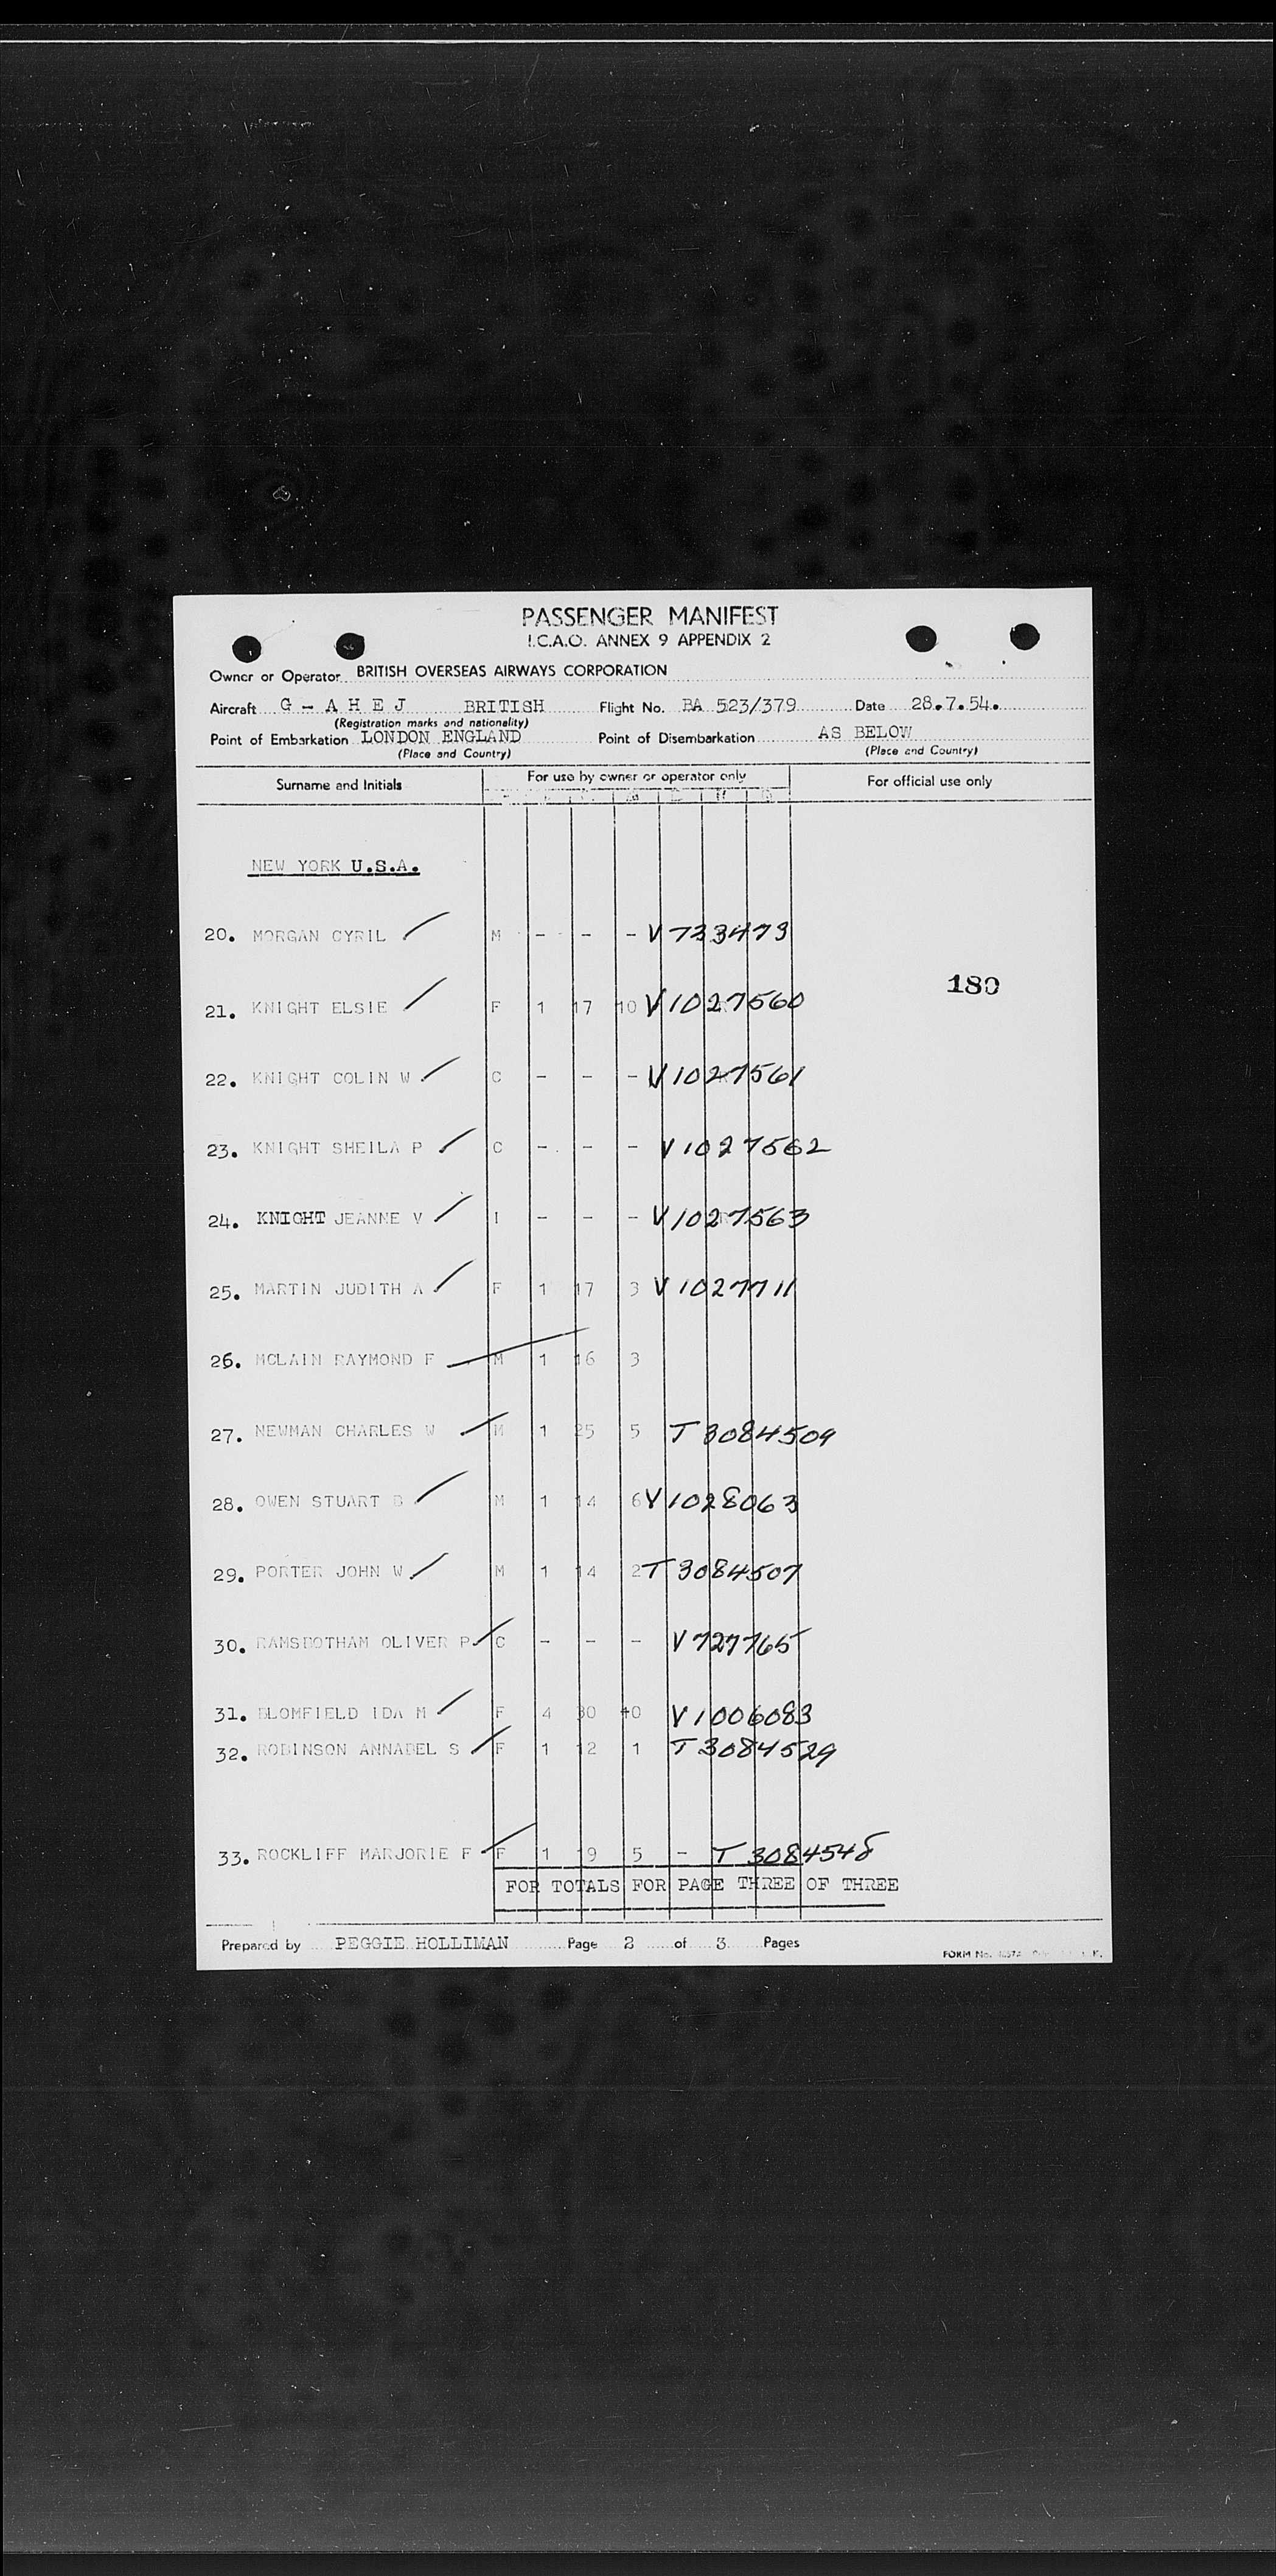 PASSENGER MANIFEST
I.C.A.O. ANNEX 9 APPENDIX 2
Owner or Operator BRITISH OVERSEAS AIRWAYS CORPORATION
Aircraft G - A H E J BRITISH Flight No. BA 523/379 Date 28.7.54.
(Registration marks and nationality)
Point of Embarkation LONDON ENGLAND Point of Disembarkation AS BELOW
(Place and Country) (Place and Country)
Surname and Initials For use by owner or operator only For official use only
NEW YORK U.S.A.
20. MORGAN CYRIL M - - - V 733473
180
21. KNIGHT ELSIE F 1 17 10 V1027560
22. KNIGHT COLIN W C - - - V1027561
23. KNIGHT SHEILA P C - - - V1027562
24. KNIGHT JEANNE V I - - - V1027563
25. MARTIN JUDITH A F 1 17 3 V1027711
26. MCLAIN RAYMOND F M 1 16 3
27. NEWMAN CHARLES W M 1 25 5 T 3084509
28. OWEN STUART D M 1 14 6 V1028063
29. PORTER JOHN W M 1 14 2 T 3084507
30. RAMSBOTHAM OLIVER P C - - - V727765
31. BLOMFIELD IDA M F 4 30 40 V1006083
32. ROBINSON ANNABEL S F 1 12 1 T 3084529
33. ROCKLIFF MARJORIE F F 1 19 5 - T 3084548
FOR TOTALS FOR PAGE THREE OF THREE
Prepared by PEGGIE HOLLIMAN Page 2 of 3 Pages
FORM No.